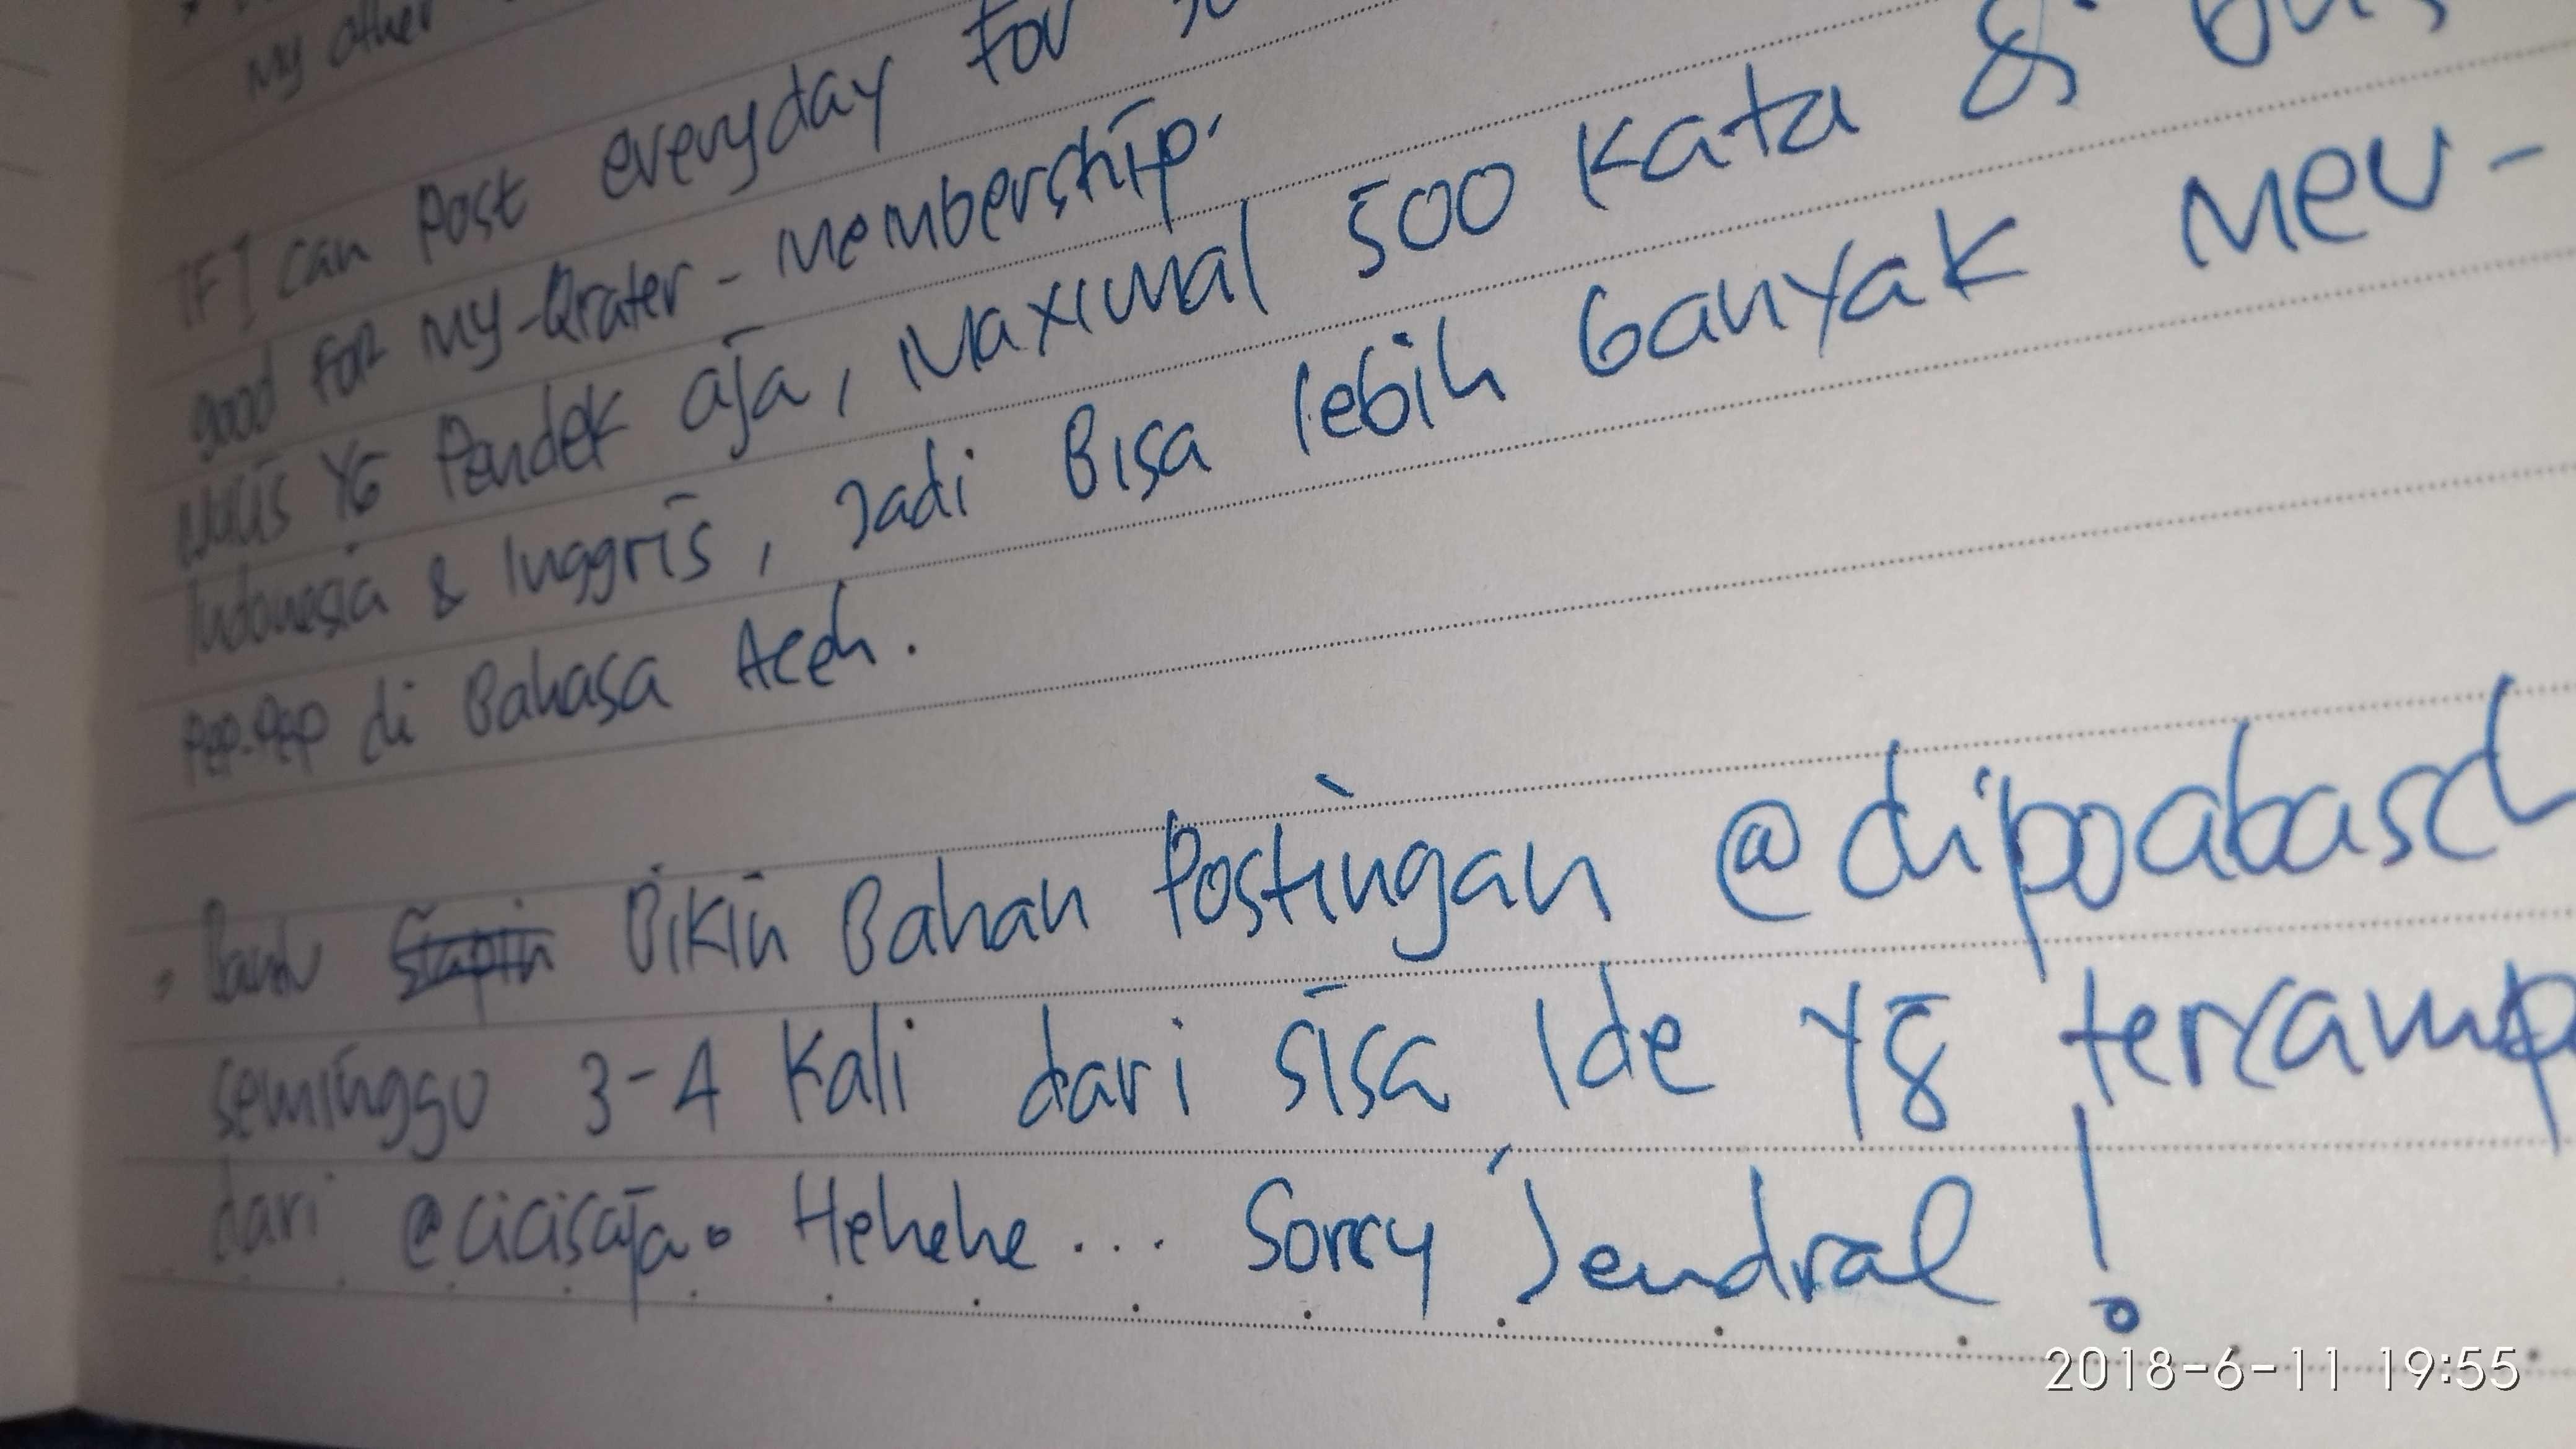 My other
IF I can Post everyday For
good for My-Qrater-Membership.
Nulis YG Pendek aja, Maximal 500 Kata di
Indonesia & Inggris, Jadi Bisa lebih banyak Men-
di Bahasa Aceh.
Bantu Siapin Bikin Bahan Postingan @dipoabasch
seminggu 3-4 Kali dari sisa Ide YG
dari @cicisaja. Hehehe... Sorry Jendral!
2018-6-11 19:55